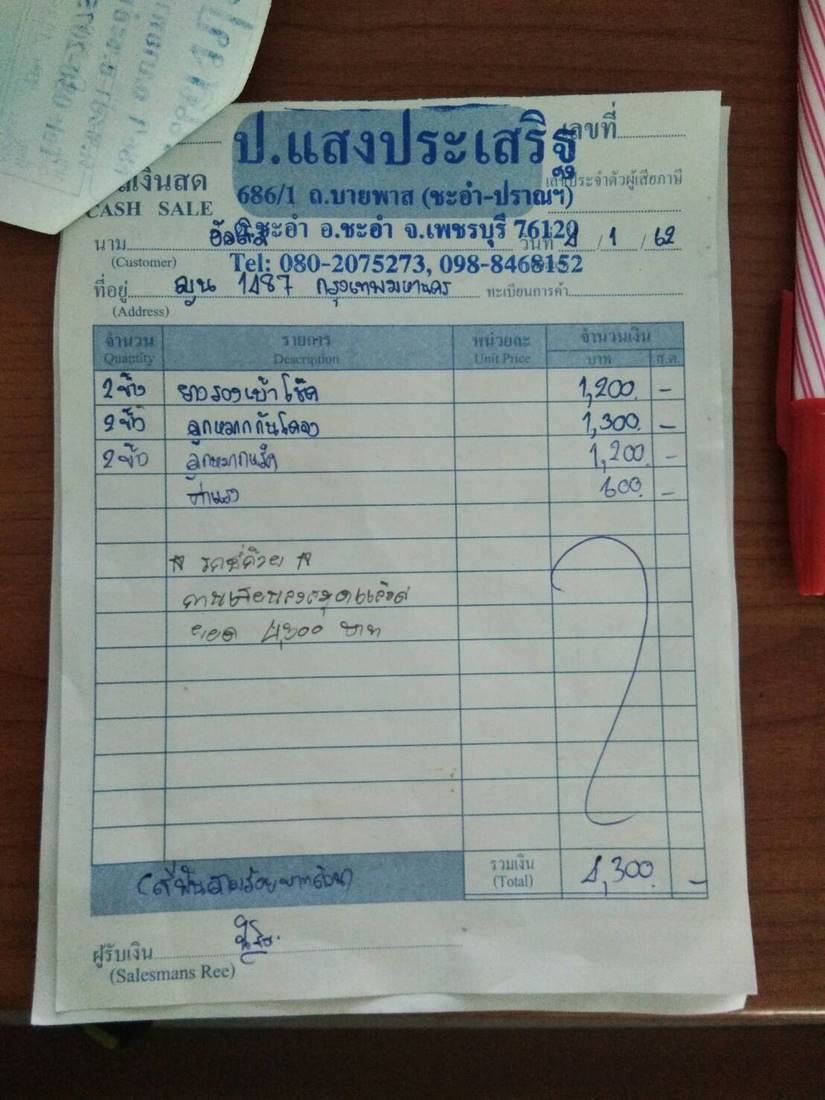 เลขที่
ป.แสงประเสริฐ
เงินสด
CASH SALE
686/1 ถ.บายพาส (ชะอำ-ปราณฯ)
ประจำตัวผู้เสียภาษี
ชะอำ อ.ชะอำ จ.เพชรบุรี 76120
นาม
วันที่ 4 / 1 / 62
(Customer)
Tel: 080-2075273, 098-8468152
ที่อยู่ 1487 กรุงเทพมหานคร
ทะเบียนการค้า
(Address)
จำนวน รายการ หน่วยละ จำนวนเงิน
Quantity Description Unit Price บาท ส.ต.
2 ชิ้น ยางรองเบ้าโช๊ค 1,200 -
2 ชิ้น ลูกหมากกันโคลง 1,300 -
2 ชิ้น ลูกหมากแร็ค 1,200 -
ค่าแรง 600 -
ยอด 4,300 บาท
(สี่พันสามร้อยบาทถ้วน) รวมเงิน 4,300 -
(Total)
ผู้รับเงิน
(Salesmans Ree)